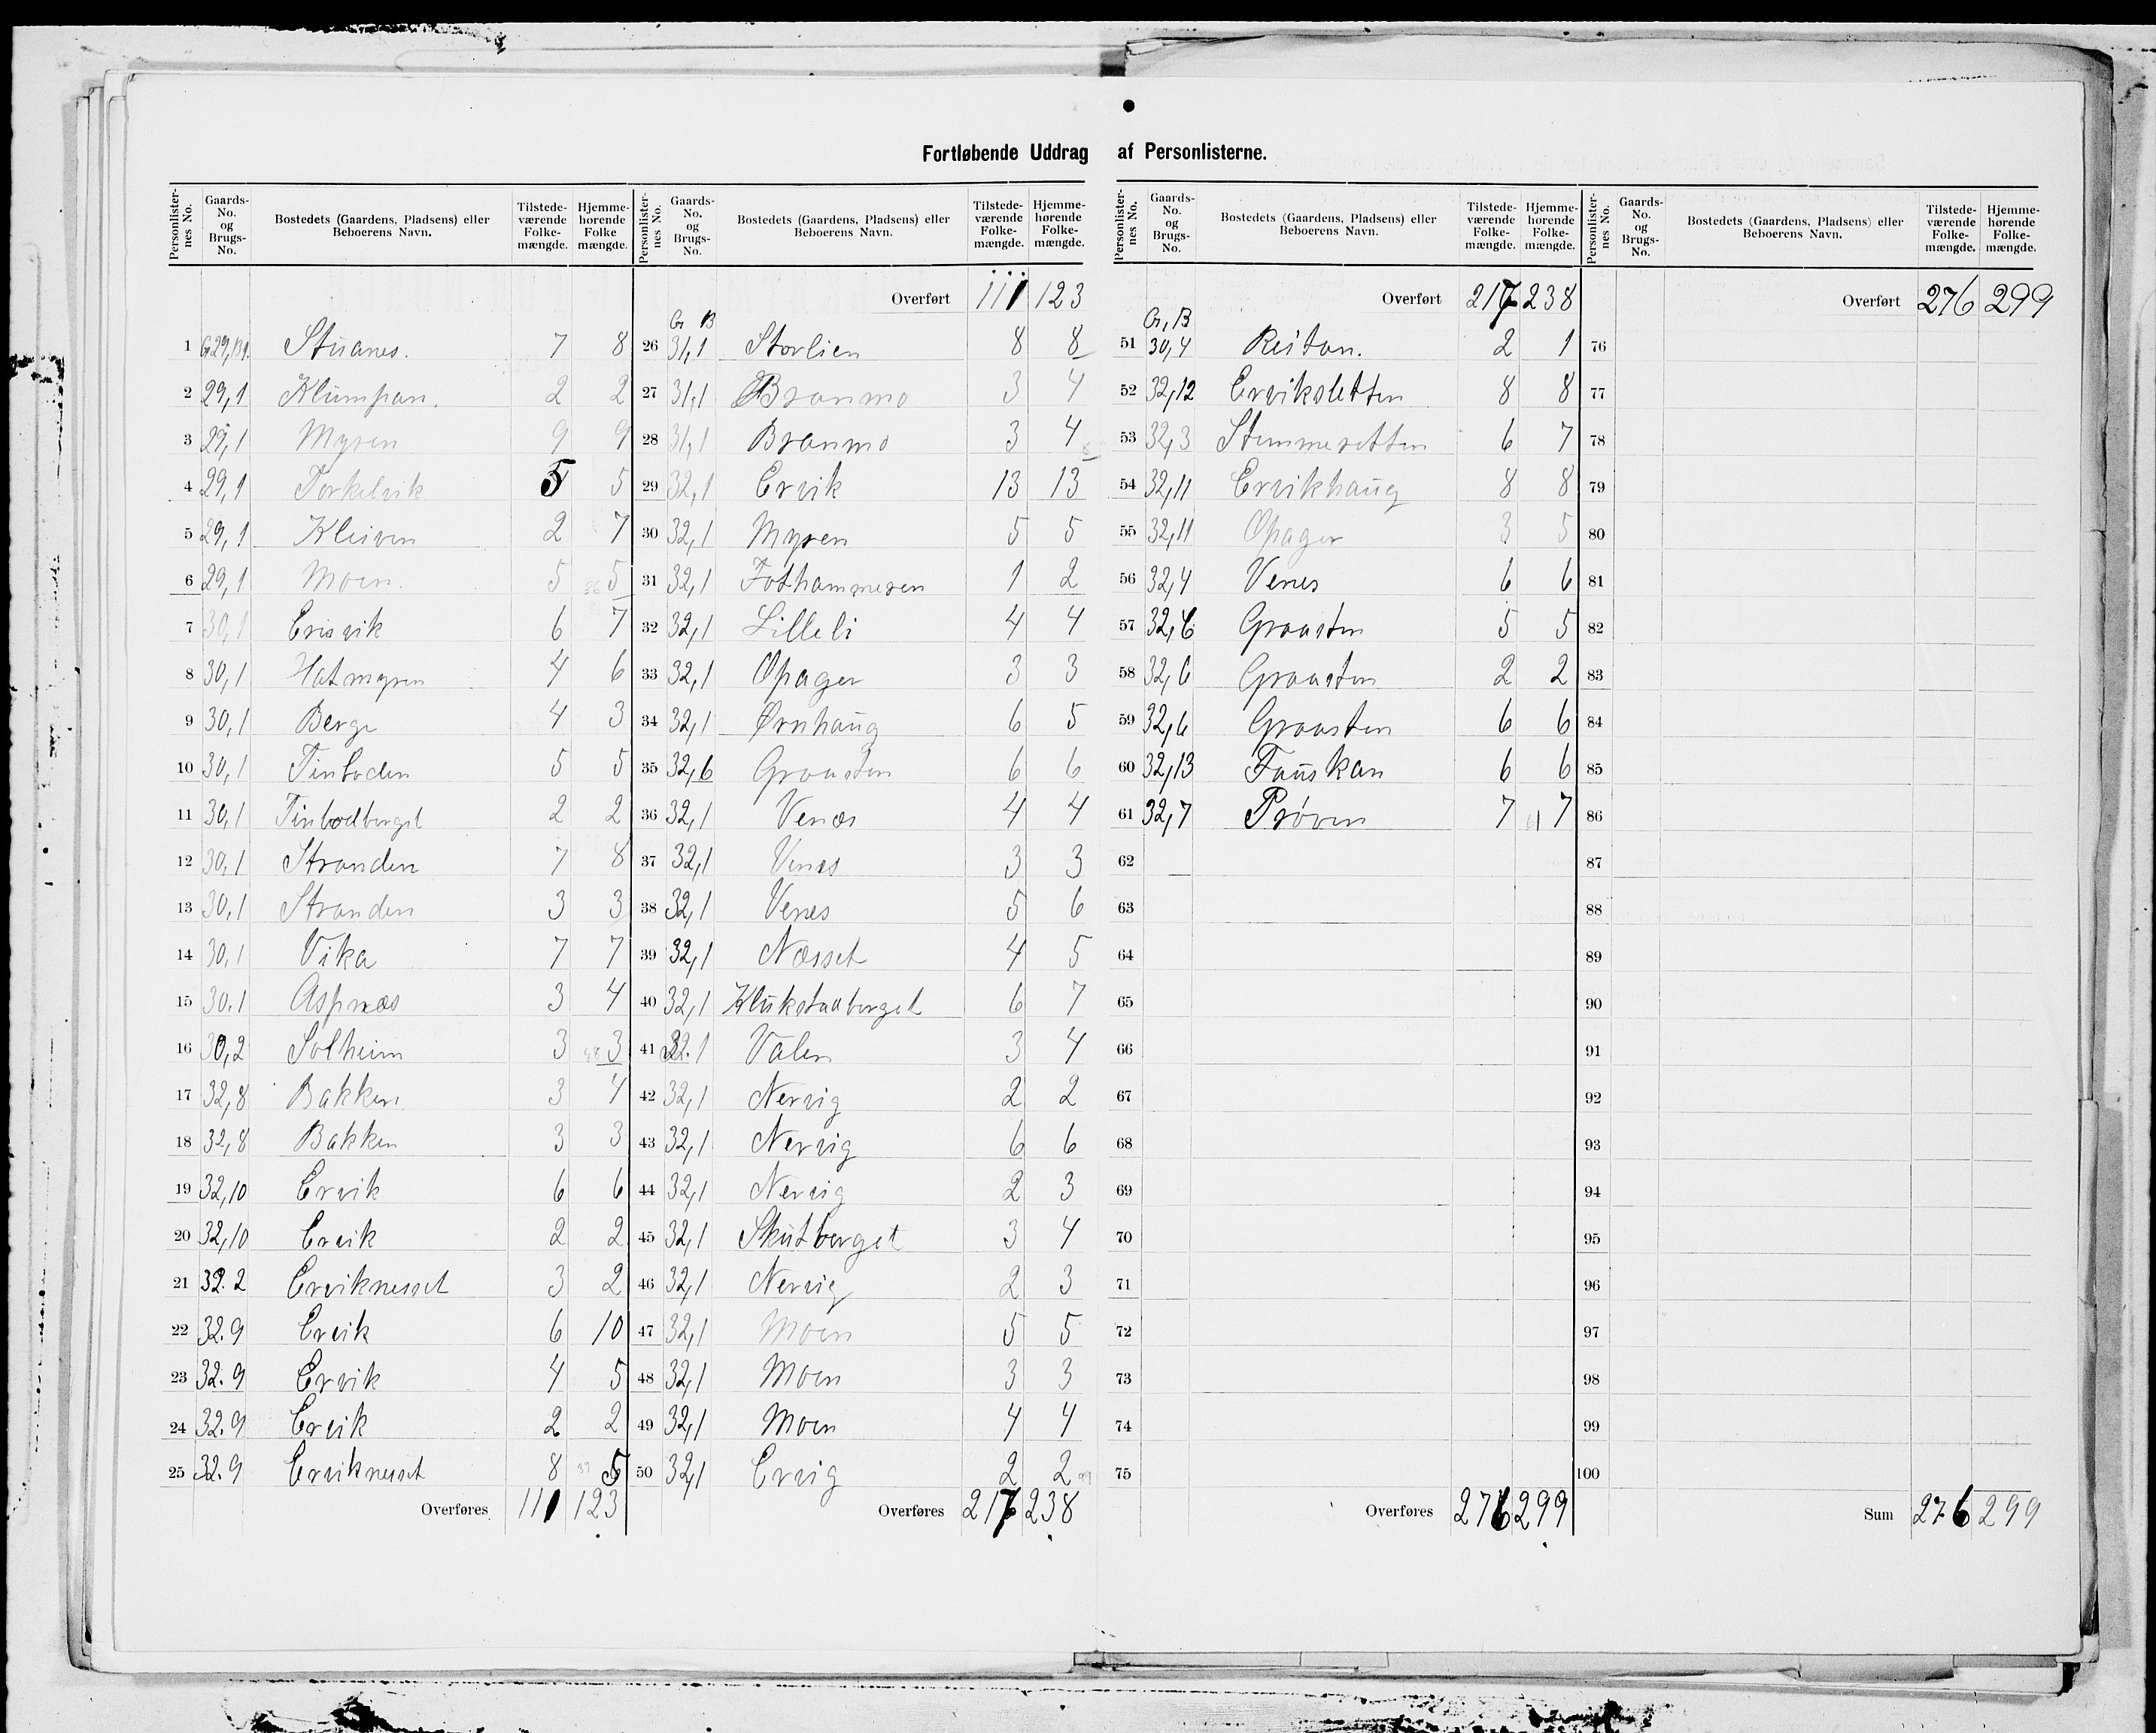 Fortløbende Uddrag af Personlisterne.
Personlisternes No. Gaards-No. og Brugs-No. Bostedets (Gaardens, Pladsens) eller Beboerens Navn. Tilstedeværende Folkemængde. Hjemmehørende Folkemængde.
1 G 29, B 1. Stuanes. 7 8
2 29,1 Klumpan. 2 2
3 29,1 Myren 9 9
4 29,1 Torkelvik 5 5
5 29,1 Kleiven 2 7
6 29,1 Moen. 5 36 5
7 30,1 Erisvik 6 7
8 30,1 Hatmyren 4 6
9 30,1 Berge 4 3
10 30,1 Tinboden 5 5
11 30,1 Tinbodberget 2 2
12 30,1 Stranden 7 8
13 30,1 Stranden 3 3
14 30,1 Vika 7 7
15 30.1 Aspnæs 3 4
16 30,2 Solheim 3 48 3
17 32,8 Bakken 3 4
18 32,8 Bakken 3 3
19 32,10 Ervik 6 6
20 32,10 Ervik 2 2
21 32.2 Erviknesset 3 2
22 32.9 Ervik 6 10
23 32.9 Ervik 4 5
24 32.9 Ervik 2 2
25 32.9 Erviknesset 8 39 5
Overføres 111 123
Personlisternes No. Gaards-No. og Brugs-No. Bostedets (Gaardens, Pladsens) eller Beboerens Navn. Tilstedeværende Folkemængde. Hjemmehørende Folkemængde.
Overført 111 123
G B
26 31,1 Storlien 8 8
27 31,1 Branmo 3 4
28 31,1 Branmo 3 4
29 32,1 Ervik 13 13
30 32,1 Myren 5 5
31 32,1 Fothammeren 1 2
32 32,1 Lilleli 4 4
33 32,1 Opager 3 3
34 32,1 Ørnhaug 6 5
35 32,6 Graasten 6 6
36 32,1 Venæs 4 4
37 32,1 Venes 3 3
38 32,1 Venes 5 6
39 32,1 Næsset 4 5
40 32,1 Klukstadberget 6 7
41 32.1 Valen 3 4
42 32,1 Nervig 2 2
43 32,1 Nervig 6 6
44 32,1 Nervig 2 3
45 32,1 Skutberget 3 4
46 32,1 Nervig 2 3
47 32,1 Moen 5 5
48 32,1 Moen 3 3
49 32,1 Moen 4 4
50 32,1 Ervig 2 2
Overføres 217 238
Personlisternes No. Gaards-No. og Brugs-No. Bostedets (Gaardens, Pladsens) eller Beboerens Navn. Tilstedeværende Folkemængde. Hjemmehørende Folkemængde.
Overført 217 238
G, B
51 30,4 Reitan. 2 1
52 32,12 Erviksletten 8 8
53 32,3 Stemmesetten 6 7
54 32,11 Ervikhaug 8 8
55 32,11 Opager 3 5
56 32,4 Venes 6 6
57 32,6 Graasten 5 5
58 32,6 Graasten 2 2
59 32,6 Graasten 6 6
60 32,13 Fauskan 6 6
61 32,7 Prøven 7 61 7
62
63
64
65
66
67
68
69
70
71
72
73
74
75
Overføres 276 299
Personlisternes No. Gaards-No. og Brugs-No. Bostedets (Gaardens, Pladsens) eller Beboerens Navn. Tilstedeværende Folkemængde. Hjemmehørende Folkemængde.
Overført 276 299
76
77
78
79
80
81
82
83
84
85
86
87
88
89
90
91
92
93
94
95
96
97
98
99
100
Sum 276 299